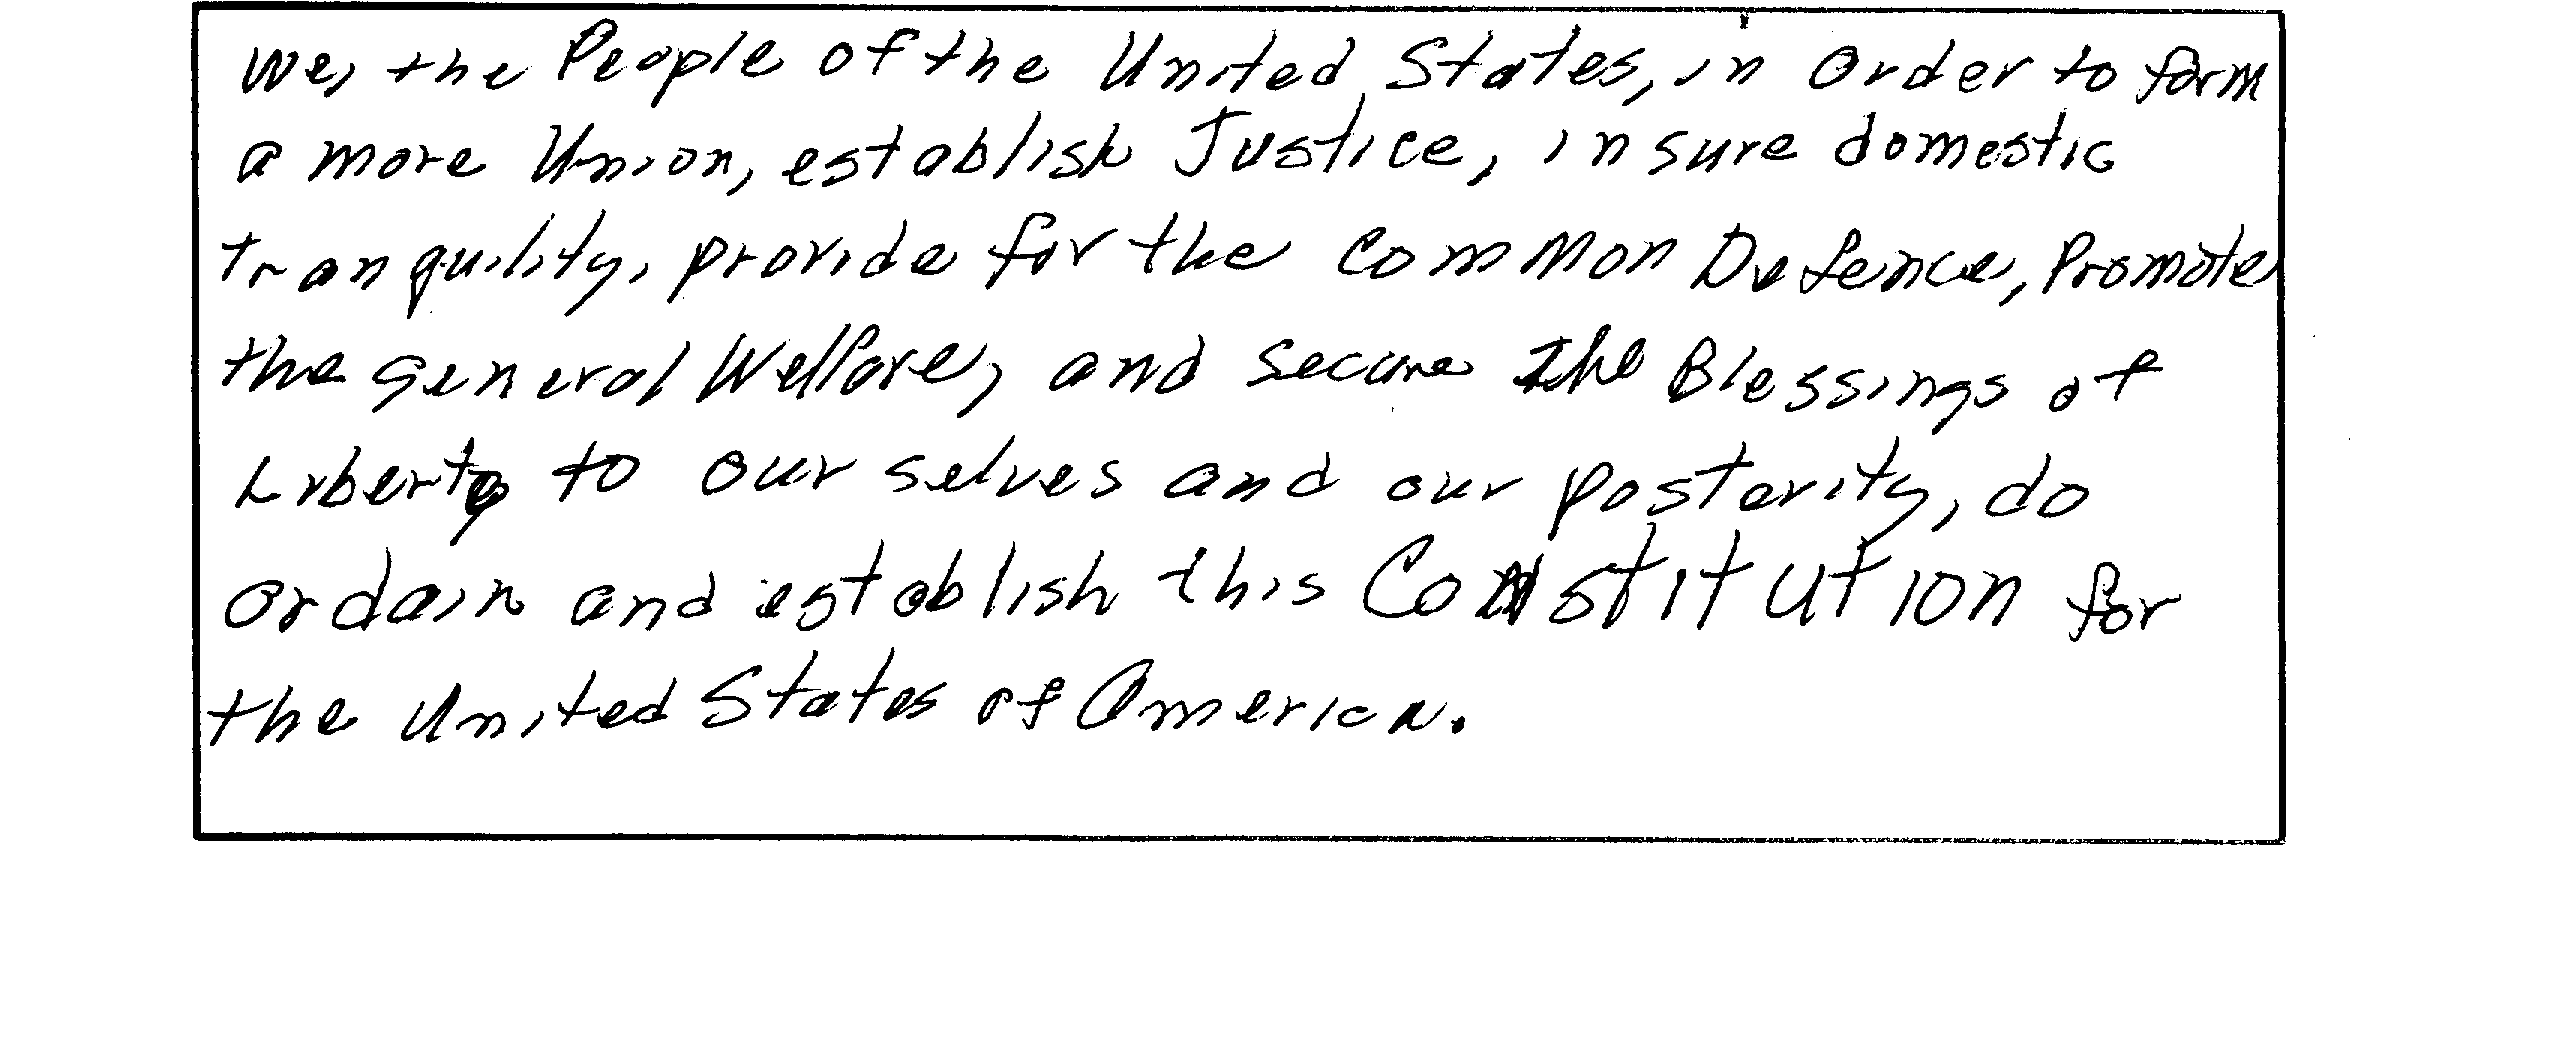 We, the People of the United States, in order to form
a more Union, establish Justice, insure domestic
tranquility, provide for the common Defence, Promote
the general Welfare, and secure the Blessings of
Liberty to our selves and our posterity, do
ordain and establish this Constitution for
the United States of America.